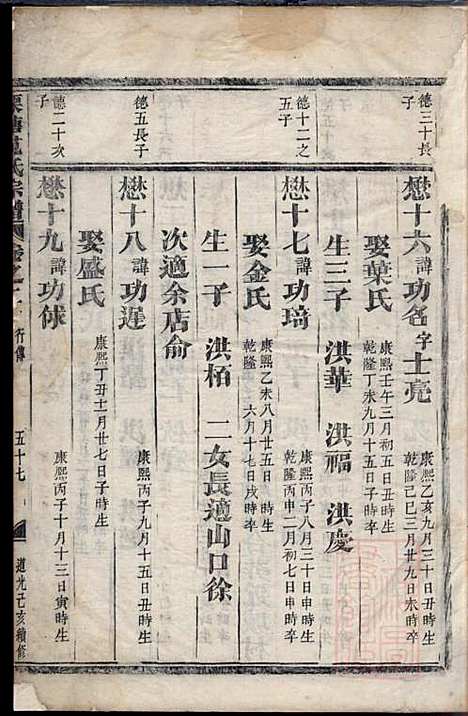 德三十長
子
懋十六諱功名字士亮
康熙乙亥九月三十日丑時生
乾隆己巳三月廿九日未時卒
娶葉氏
康熙壬午三月初五日丑時生
乾隆丁未九月十五日子時卒
生三子 洪華 洪福 洪慶
德十二之
五子
懋十七諱功琦
康熙丙子八月三十日申時生
乾隆丙申二月初七日申時卒
娶金氏
康熙乙未八月廿五日時生
乾隆 六月十七日戌時卒
生一子 洪栢 二女長適山口徐
次適余店俞
德五長子
懋十八諱功遅
康熙丙子九月十五日丑時生
娶盛氏
康熙丁丑十二月廿七日子時生
德二十次
子
懋十九諱功俅
康熙丙子十月十三日寅時生
氏宗譜 卷之 行傳 五十七 道光己亥續修